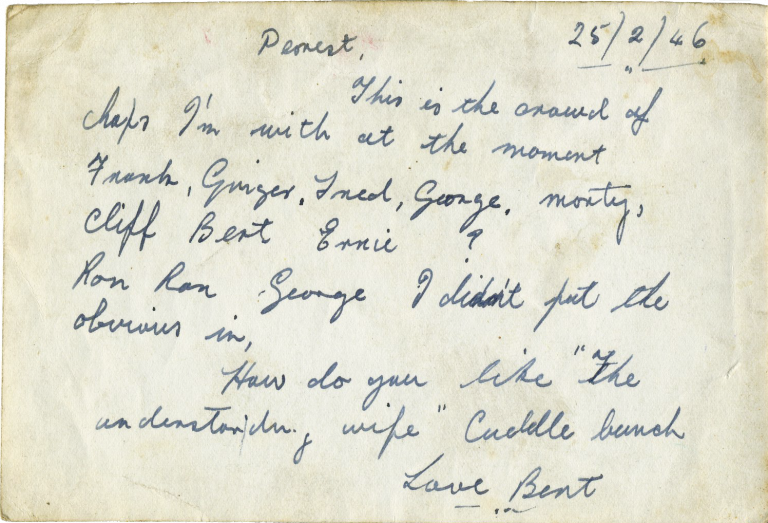 Dearest, 25/2/46
This is the crowd of
chaps I'm with at the moment
Frank, Ginger, Fred, George, monty,
Cliff Bert Ernie ?
Ron Ron George I didn't put the
obvious in,
How do you like "The
understanding wife" Cuddle bunch
Love Bert